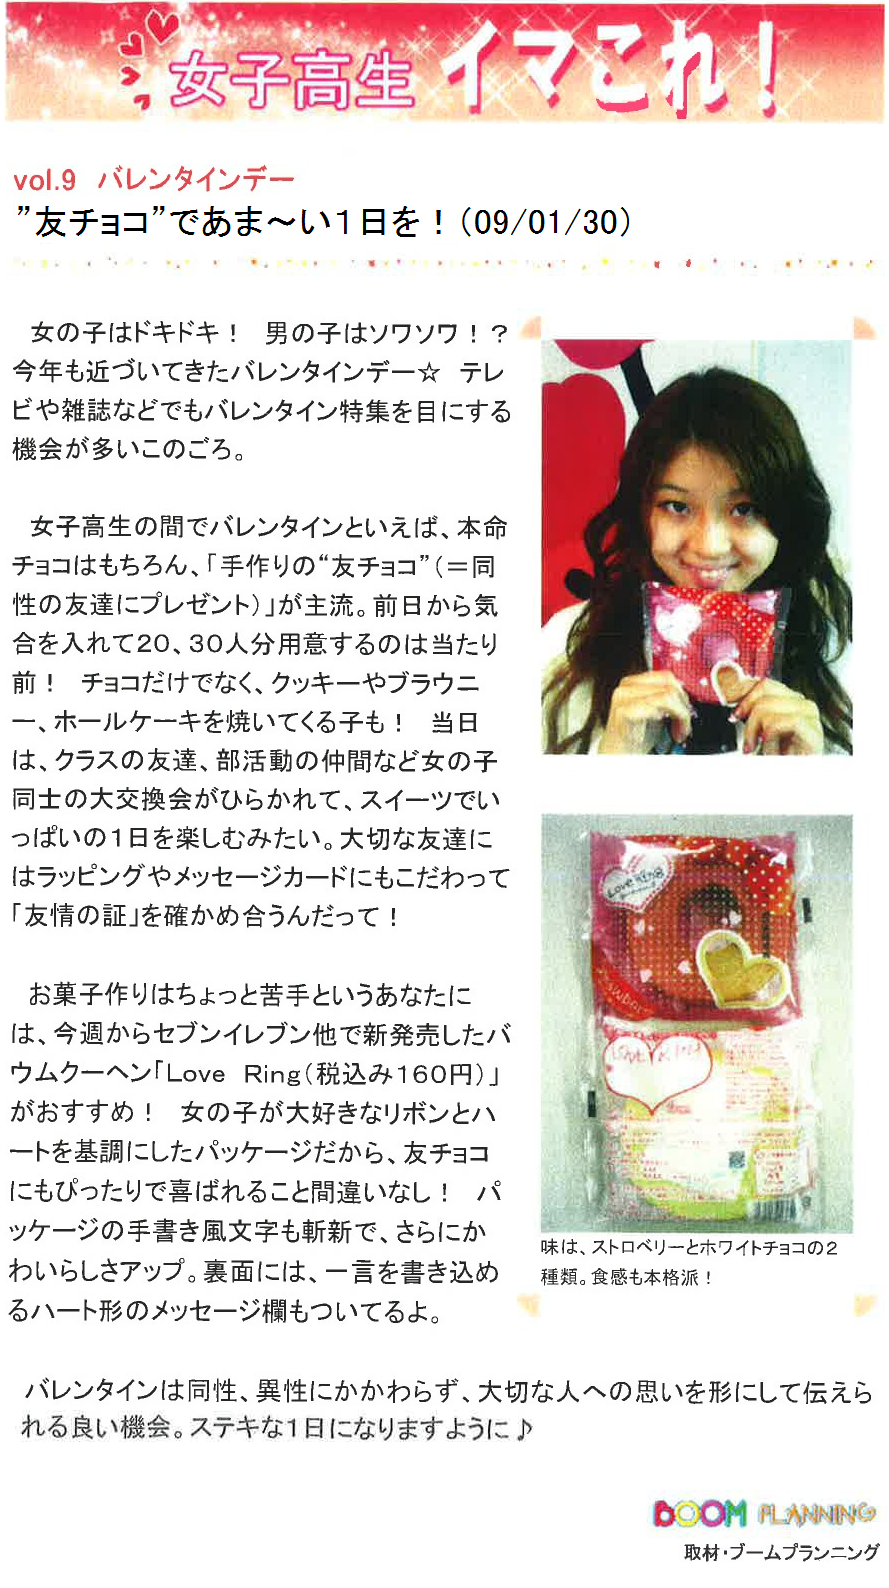 女子高生 イマこれ！
vol.9　バレンタインデー
”友チョコ”であま～い１日を！（09/01/30）
女の子はドキドキ！　男の子はソワソワ！？
今年も近づいてきたバレンタインデー☆　テレ
ビや雑誌などでもバレンタイン特集を目にする
機会が多いこのごろ。
女子高生の間でバレンタインといえば、本命
チョコはもちろん、「手作りの“友チョコ”（＝同
性の友達にプレゼント）」が主流。前日から気
合を入れて２０、３０人分用意するのは当たり
前！　チョコだけでなく、クッキーやブラウニ
ー、ホールケーキを焼いてくる子も！　当日
は、クラスの友達、部活動の仲間など女の子
同士の大交換会がひらかれて、スイーツでい
っぱいの１日を楽しむみたい。大切な友達に
はラッピングやメッセージカードにもこだわって
「友情の証」を確かめ合うんだって！
お菓子作りはちょっと苦手というあなたに
は、今週からセブンイレブン他で新発売したバ
ウムクーヘン「Ｌｏｖｅ　Ｒｉｎｇ（税込み１６０円）」
がおすすめ！　女の子が大好きなリボンとハ
ートを基調にしたパッケージだから、友チョコ
にもぴったりで喜ばれること間違いなし！　パ
ッケージの手書き風文字も斬新で、さらにか
わいらしさアップ。裏面には、一言を書き込め
るハート形のメッセージ欄もついてるよ。
Love Ring
味は、ストロベリーとホワイトチョコの２
種類。食感も本格派！
バレンタインは同性、異性にかかわらず、大切な人への思いを形にして伝えら
れる良い機会。ステキな１日になりますように♪
BOOM PLANNING
取材・ブームプランニング